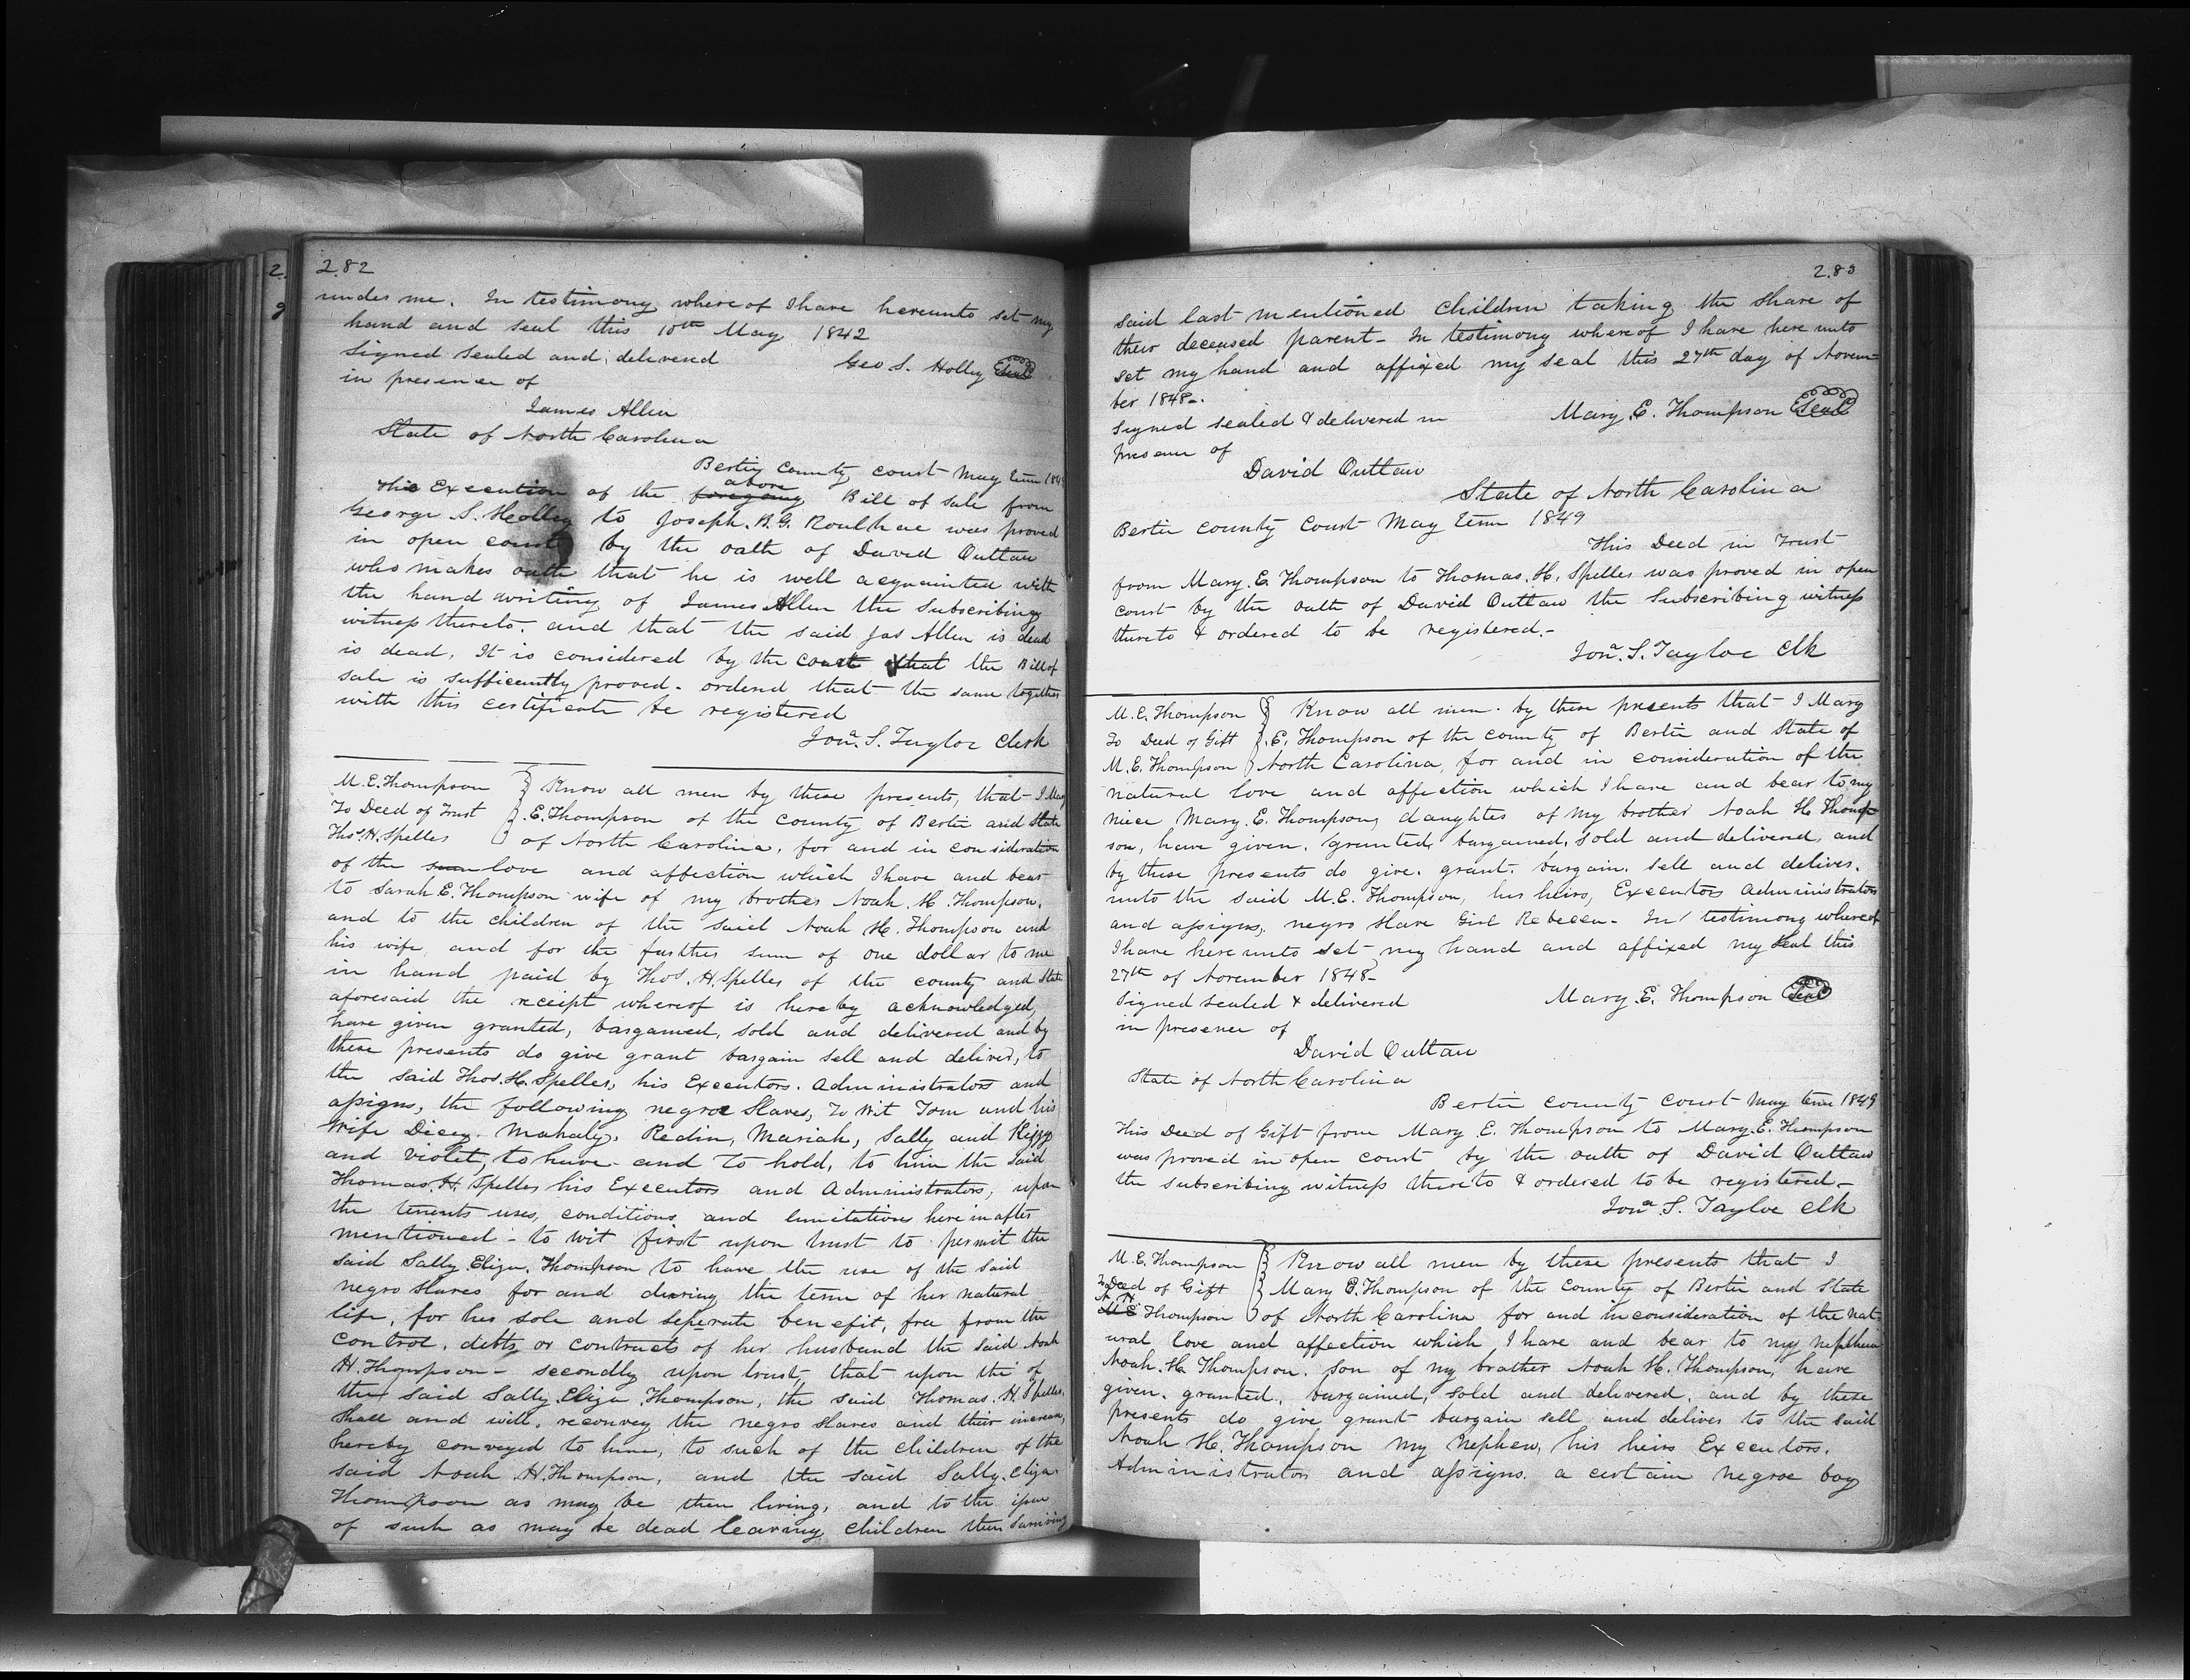 2.82
under me. In testimony whereof I have hereunto set my
hand and seal this 10th May 1842
Signed Sealed and delivered Geo S. Holley Seal
in presence of
James Allen
State of North Carolina
Bertie County court May term 184
This Execution of the foregoing above Bill of Sale from
George S. Holley to Joseph. B. G. Roulhac was proved
in open court by the oath of David Outlaw
who makes oath that he is well acquainted with
the hand writing of James Allen the Subscribing
witness thereto. and that the said Jas Allen is dead
is dead. It is considered by the court that the Bill of
sale is sufficiently proved - ordered that the same together
with this certificate be registered
Jona. S. Tayloe Clerk
M. E. Thompson
To Deed of Trust
Thos. H. Speller
Know all men by these presents, that I Mary
E. Thompson of the county of Bertie and State
of North Carolina, for and in consideration
of the sum love and affection which I have and bear
to Sarah E. Thompson wife of my brother Noah. H. Thompson,
and to the children of the said Noah H. Thompson and
his wife, and for the further sum of one dollar to me
in hand paid by Thos. H. Speller of the county and State
aforesaid the receipt whereof is hereby acknowledged,
have given granted, bargained, sold and delivered and by
these presents do give grant bargain sell and deliver, to
the said Thos. H. Speller, his Executors. Administrators and
assigns, the following negroe Slaves, To Wit Tom and his
Wife Dicey. Mahaly, Redin, Mariah, Sally and Kizzy
and Violet, to have and To hold, to him the said
Thomas. H. Speller his Executors and Administrators, upon
the tenents uses, conditions and limitations herein after
mentioned - to wit first upon trust to permit the
said Sally Eliza. Thompson to have the use of the said
negro slaves for and during the term of her natural
life, for her sole and seperate benefit, free from the
control, debts, or contracts of her husband the said Noah
H. Thompson - secondly upon trust, that upon the of
the said Sally. Eliza. Thompson, the said Thomas. H. Speller,
shall and will. reconvey the negro slaves and their increase,
hereby conveyed to him, to such of the children of the
said Noah H. Thompson, and the said Sally. Eliza
Thompson as may be then living, and to the issue
of such as may be dead leaving children then surviving
2.83
said last mentioned children taking the share of
their deceased parent - In testimony whereof I have here unto
set my hand and affixed my seal this 27th day of Novem-
ber 1848 -.
Signed sealed & delivered in Mary. E. Thompson Seal
presence of
David Outlaw
State of North Carolina
Bertie County Court May term 1849
This Deed in Trust
from Mary. E. Thompson to Thomas. H. Speller was proved in open
court by the oath of David Outlaw the Subscribing witness
thereto & ordered to be registered. -
Jona. S. Tayloe Clk
M. E. Thompson
To Deed of Gift
M. E. Thompson
Know all men. by these presents that I Mary
.E. Thompson of the county of Bertie and State of
North Carolina, for and in consideration of the
natural love and affection which I have and bear to my
niece Mary. E. Thompson, daughter of my brother Noah H Thomp-
son, have given, granted, bargained, sold and delivered, and
by these presents do give. grant. bargain. sell and deliver.
unto the said M. E. Thompson, her heirs, Executors Administrators
and assigns, negro slave Girl Rebecca - In testimony whereof
I have here unto set my hand and affixed my seal this
27th of November 1848 -
Signed sealed & delivered Mary. E. Thompson Seal
in presence of
David Outlaw
State of North Carolina
Bertie county court May term 1849
This Deed of Gift from Mary E. Thompson to Mary. E. Thompson
was proved in open court by the oath of David Outlaw
the subscribing witness thereto & ordered to be registered -
Jona. S. Tayloe Clk
M. E. Thompson
To Deed of Gift
N. H.
M E Thompson
Know all men by these presents that I
Mary E. Thompson of the County of Bertie and State
of North Carolina for and in consideration of the nat-
ural love and affection which I have and bear to my nephew
Noah. H. Thompson. son of my brother Noah H. Thompson, have
given. granted. bargained, sold and delivered. and by these
presents do give grant bargain sell and deliver to the said
Noah H. Thompson my Nephew, his heirs Executors.
Administrators and assigns. a certain negroe boy